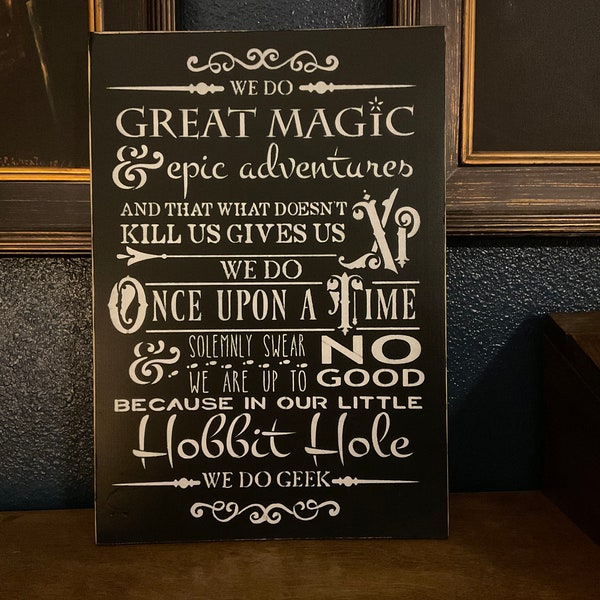 WE DO
GREAT MAGIC
& epic adventures
AND THAT WHAT DOESN'T
KILL US GIVES US XP
WE DO
ONCE UPON A TIME
& SOLEMNLY SWEAR
WE ARE UP TO
NO
GOOD
BECAUSE IN OUR LITTLE
Hobbit Hole
WE DO GEEK